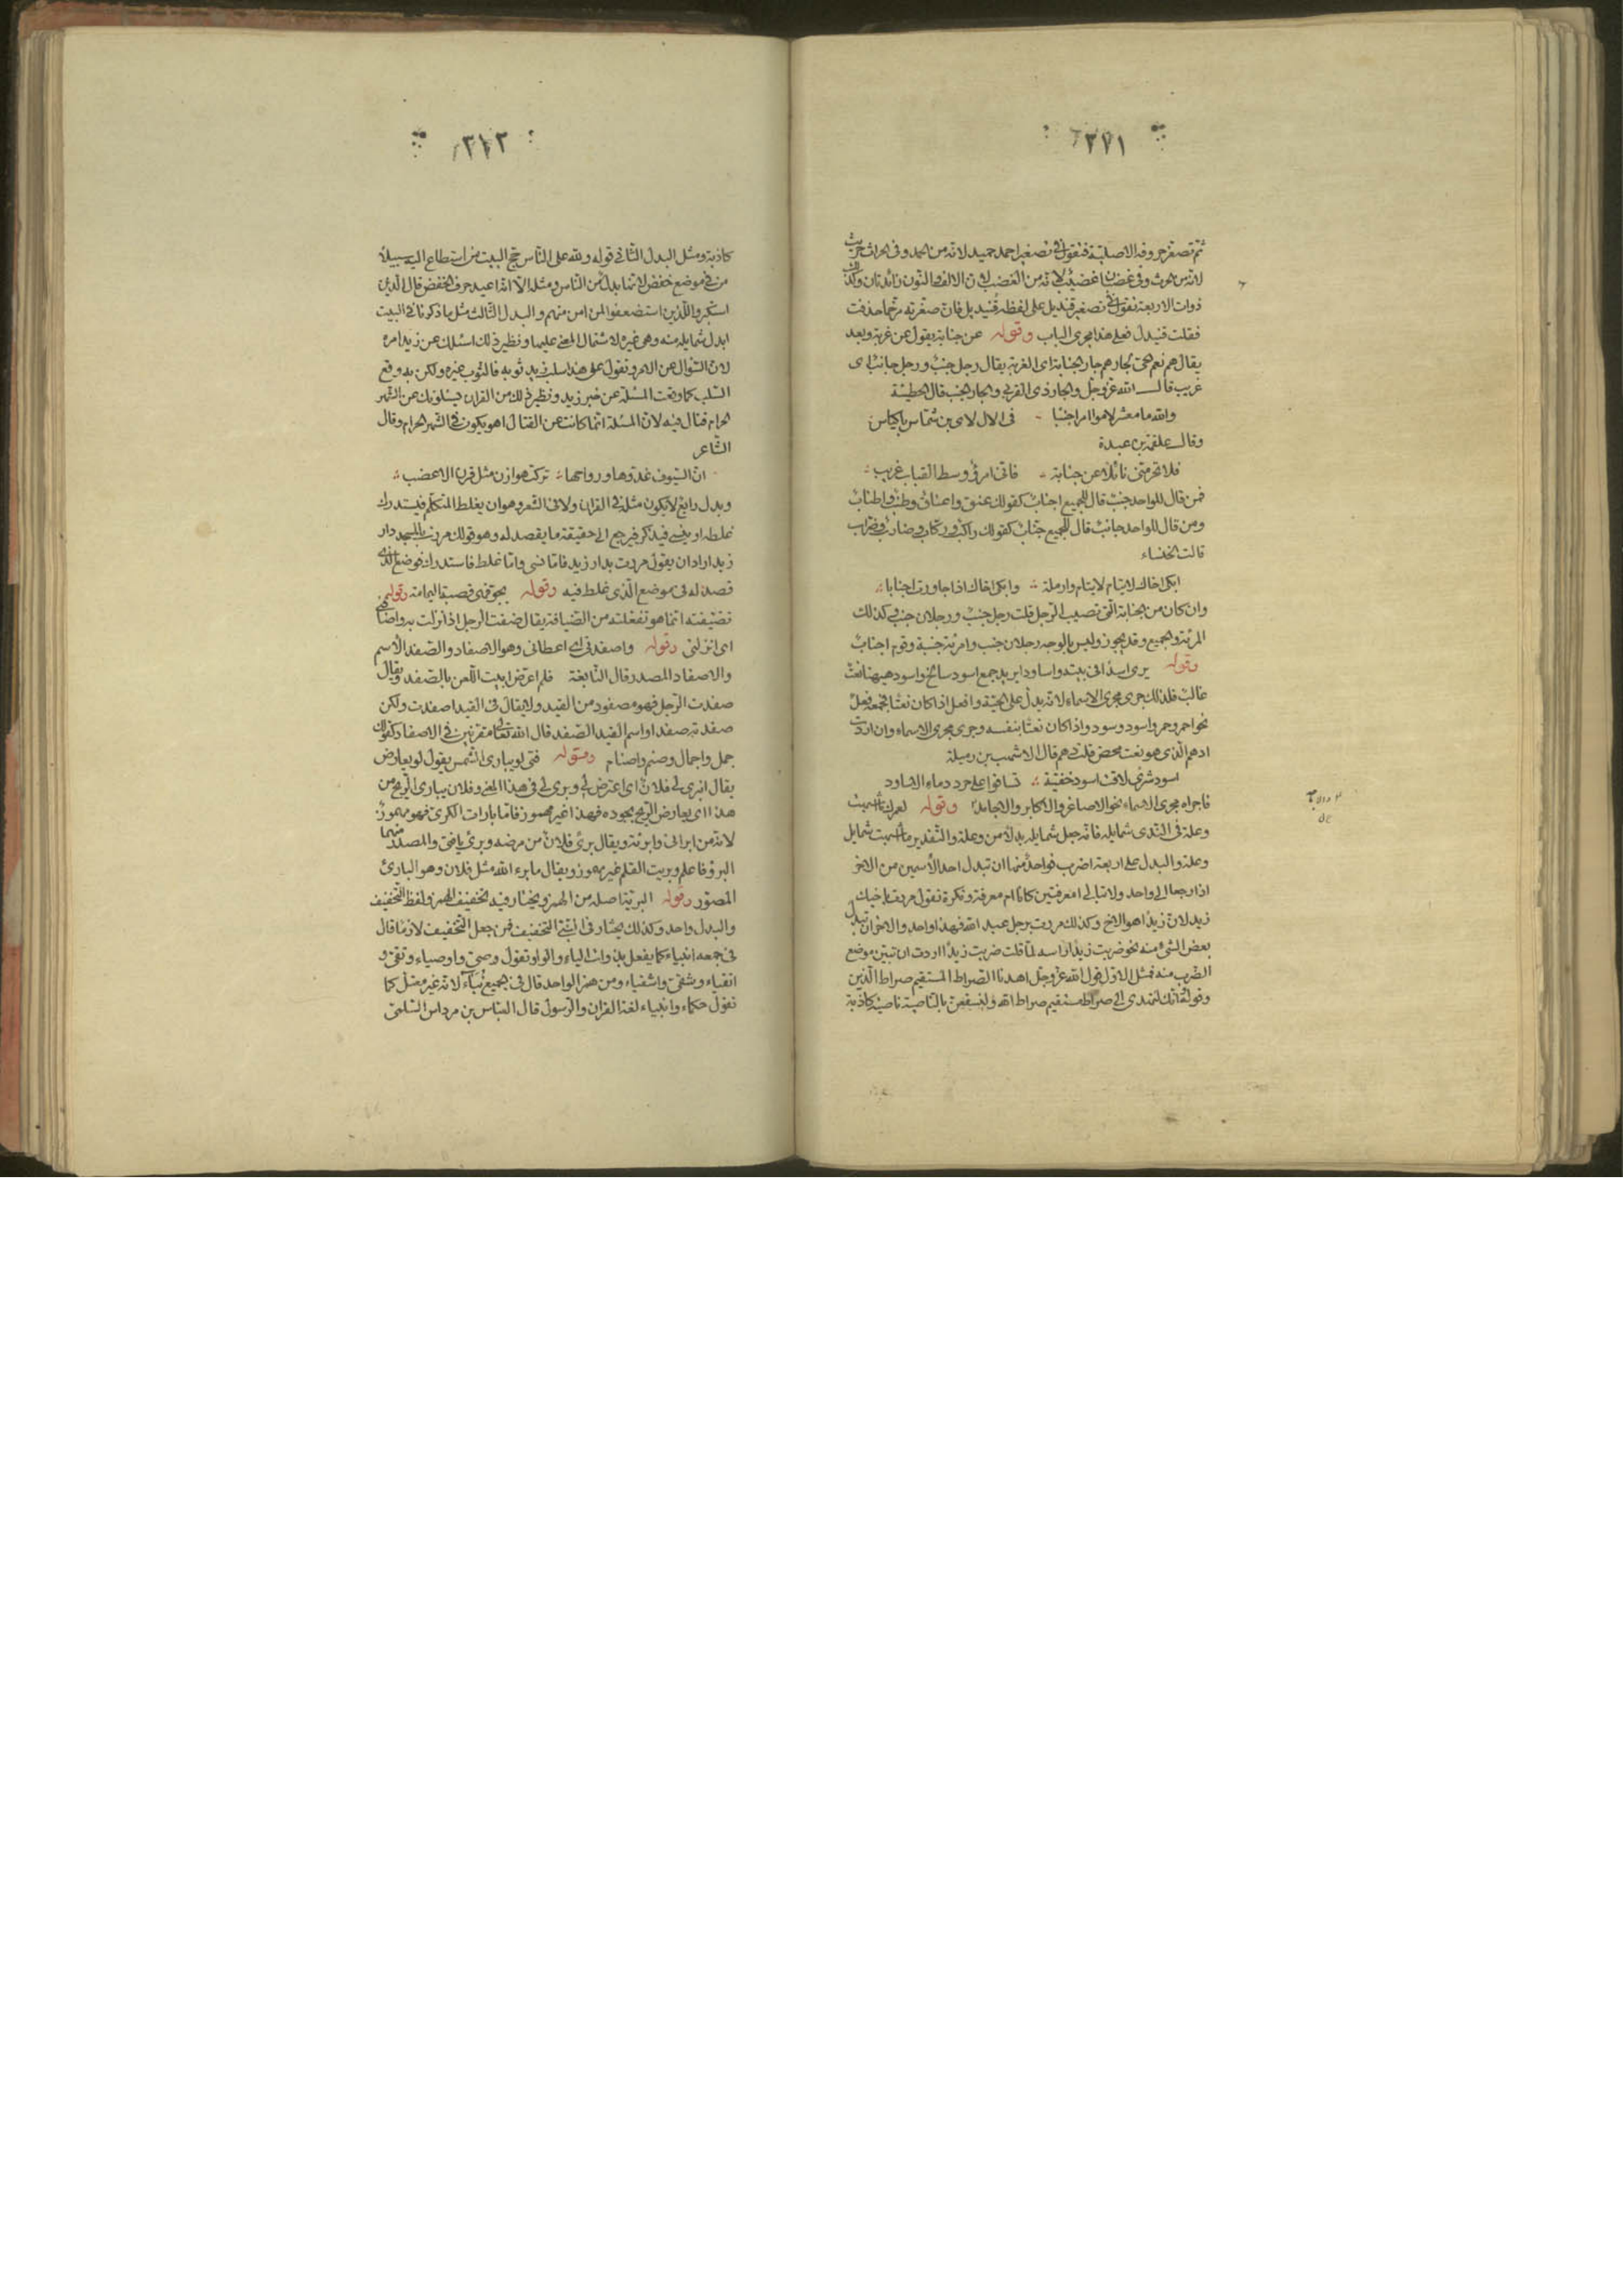 ٣٧١
ثم تصغر حروفه الاصلية فتقول فى تصغير احمد حميد لانه من الحمد وفى الحراث حريث
لانه من حرث وفى غضبان غضيب لانه من الغضب لان الالف والنون زائدتان وكذا
ذوات الاربعة تقول فى تصغير قنديل على لفظه قنيديل فان صغرته مرخما حذفت
فقلت قنيدل فعلى هذا مجرى الباب وقوله عن جنابة يقول عن غربة وبعد
يقال هم نعم الحى لجارهم جار الجنابة اى الغربة يقال رجل جنب ورجل جانب اى
غريب قال الله عز وجل والجار ذى القربى والجار الجنب قال الحطيئة
والله ما معشر لاموا امرا جنبا فى ال لاى بن شماس باكياس
وقال علقمة بن عبدة
فلا تحرمنى نائلا عن جنابة فانى امرؤ وسط القباب غريب
فمن قال للواحد جنب قال للجميع اجناب كقولك عنق واعناق وطنب واطناب
ومن قال للواحد جانب قال للجميع جناب كقولك راكب وركاب وضارب وضراب
قالت الخنساء
ابكى اخاك لايتام وارملة وابكى اخاك اذا جاورت اجنابا
وان كان من الجنابة التى تصيب الرجل قلت رجل جنب ورجلان جنب وكذلك
المرئة والجميع وقد يجوز وليس بالوجه رجلان جنب وامرئة جنبة وقوم اجناب
وقوله يرى اسدا فى بيته واساودا يريد جمع اسود سالخ واسود هيهنا نعت
غالب فلذلك جرى مجرى الاسماء لانه يدل على الحية وافعل اذا كان نعتا فجمعه فعل
نحو احمر وحمر واسود وسود واذا كان نعتا بنفسه وجرى مجرى الاسماء وان اردت
ادهم الذى هو نعت محض قلت دهم قال الاشهب بن رميلة
اسود شرى لاقت اسود خفية تساقوا على حرد دماء الاساود
فاجراه مجرى الاسماء نحو الاصاغر والاكابر والاجامد وقوله لعمرك ما اشبهت
وعلة فى الندى شمايله فانه جعل شمايله بدلا من وعلة والتقدير ما اشبهت شمايل
وعلة والبدل على اربعة اضرب فواحد منها ان تبدل احد الاسمين من الاخر
اذا رجعا الى واحد ولا تبالى امعرفتين كانا ام معرفة ونكرة تقول مررت باخيك
زيد لان زيدا هو الاخ وكذلك مررت برجل عبد الله فهذا واحد والاخر ان تبدل
بعض الشىء منه نحو ضربت زيدا راسه لما قلت ضربت زيدا اردت ان تبين موضع
الضرب منه فمثل الاول قول الله عز وجل اهدنا الصراط المستقيم صراط الذين
وقوله انك لتهدى الى صراط مستقيم صراط الله ولنسفعن بالناصية ناصية كاذبة
٣١٣
كاذبة ومثل البدل الثانى قوله ولله على الناس حج البيت من استطاع اليه سبيلا
من فى موضع خفض لانها بدل من الناس ومثله الا انه اعيد حرف الخفض قال الذين
استكبروا للذين استضعفوا لمن امن منهم والبدل الثالث مثل ما ذكرنا فى البيت
ابدل شمايله منه وهى غيره لاشتمال المعنى عليها ونظير ذلك اسئلك عن زيد امره
لان السؤال عن الامر وتقول على هذا سلب زيد ثوبه فالثوب غيره ولكن به وقع
السلب كما وقعت المسئلة عن خبر زيد ونظير ذلك من القران يسئلونك عن الشهر
الحرام قتال فيه لان المسئلة انما كانت عن القتال هو يكون فى الشهر الحرام وقال
الشاعر
ان السيوف غدوها ورواحها تركت هوازن مثل قرن الاعضب
وبدل رابع لا يكون مثله فى القران ولا فى الشعر وهو ان يغلط المتكلم فيستدرك
غلطه او ينسى فيذكر فيرجع الى حقيقة ما يقصد له وهو قولك مررت بالمسجد دار
زيد اراد ان يقول مررت بدار زيد فاما نسى واما غلط فاستدرك فوضع الذى
قصد له فى موضع الذى غلط فيه وقوله بجو فهى قصبة اليمامة وقوله
تضيفته انما هو تفعلته من الضيافة يقال ضفت الرجل اذا نزلت به واضافنى
اى انزلنى وقوله واصفدنى اى اعطانى وهو الاصفاد والصفد الاسم
والاصفاد المصدر قال النابغة فلم اعرض ابيت اللعن بالصفد ويقال
صفدت الرجل فهو مصفود من القيد ولا يقال فى القيد اصفدت ولكن
صفدته صفدا واسم القيد الصفد قال الله تعالى مقرنين فى الاصفاد كقولك
جمل واجمال وصنم واصنام وقوله فتى لو يبارى الشمس يقول لو يعارض
يقال انبرى لى فلان اى اعترض لى وبرى لى فى هذا المعنى وفلان يبارى الريح من
هذا اى يعارض الريح بجوده فهذا غير مهموز فاما بارات الكرى فهو مهموز
لانه من ابرانى وابرئته ويقال برئ فلان من مرضه وبرئ يا فتى والمصدر منهما
البرؤ فاعلم وبريت القلم غير مهموز ويقال ما برء الله مثل فلان وهو البارئ
المصور وقوله البرية اصله من الهمز ويختار فيه تخفيف الهمز ولفظ التخفيف
والبدل واحد وكذلك يختار فى النبى التخفيف فمن جعل التخفيف لازما قال
فى جمعه انبياء كما يفعل بذوات الياء والواو تقول وصى واوصياء وتقى و
اتقياء وشقى واشقياء ومن همز الواحد قال فى الجميع نباء لانه غير معتل كما
تقول حكماء وانبياء لغة القران والرسول قال العباس بن مرداس السلمى